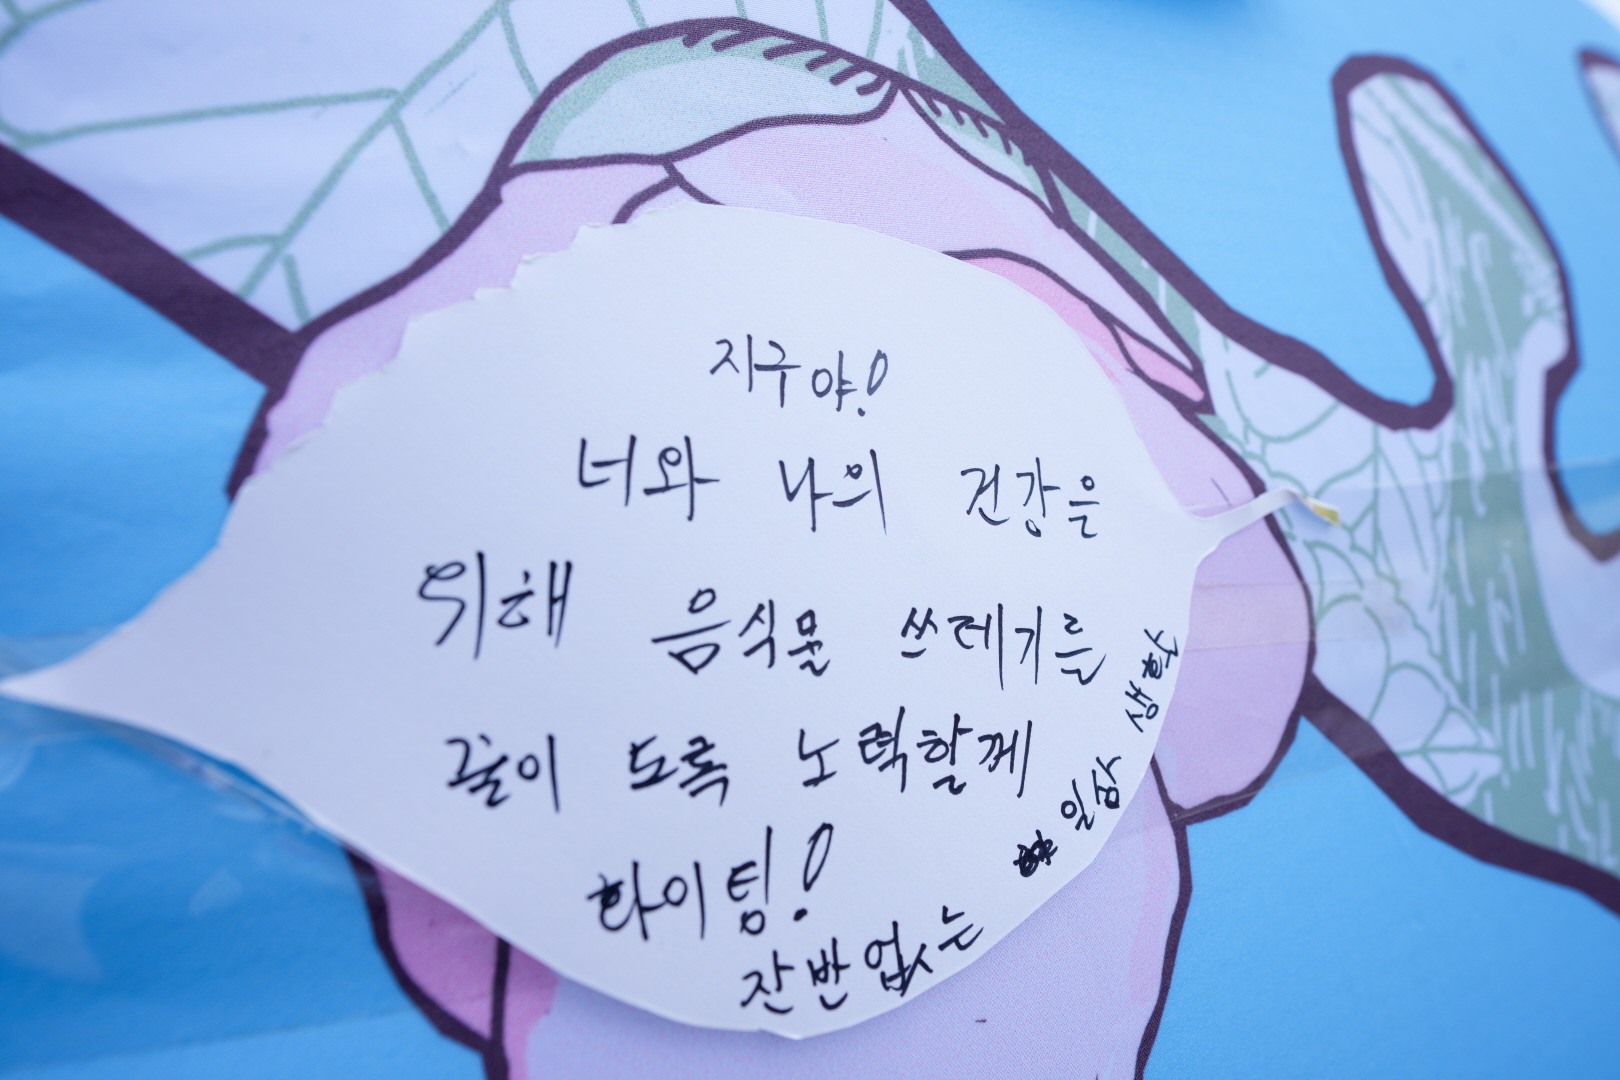 지구야!
너와 나의 건강을
위해 음식물 쓰레기를
줄이 도록 노력할께
화이팅!
잔반 없는
일상